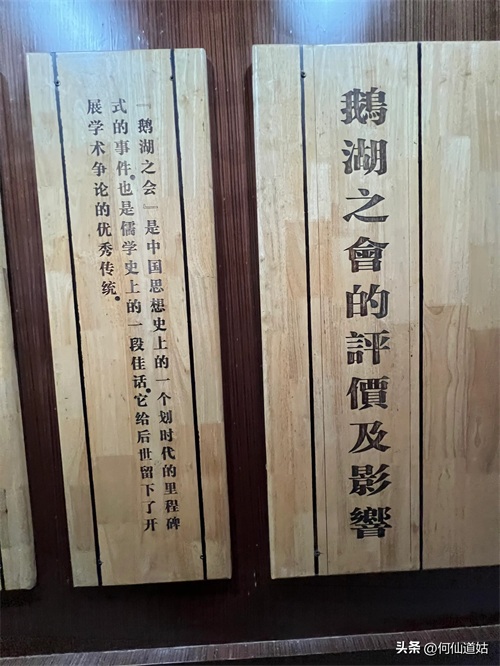 鵝湖之會的評價及影響
“鹅湖之会”是中国思想史上的一个划时代的里程碑
式的事件。也是儒学史上的一段佳话。它给后世留下了开
展学术争论的优秀传统。
头条 @何仙道姑